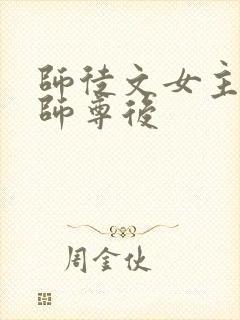 師徒文女主
師尊後
周金伙